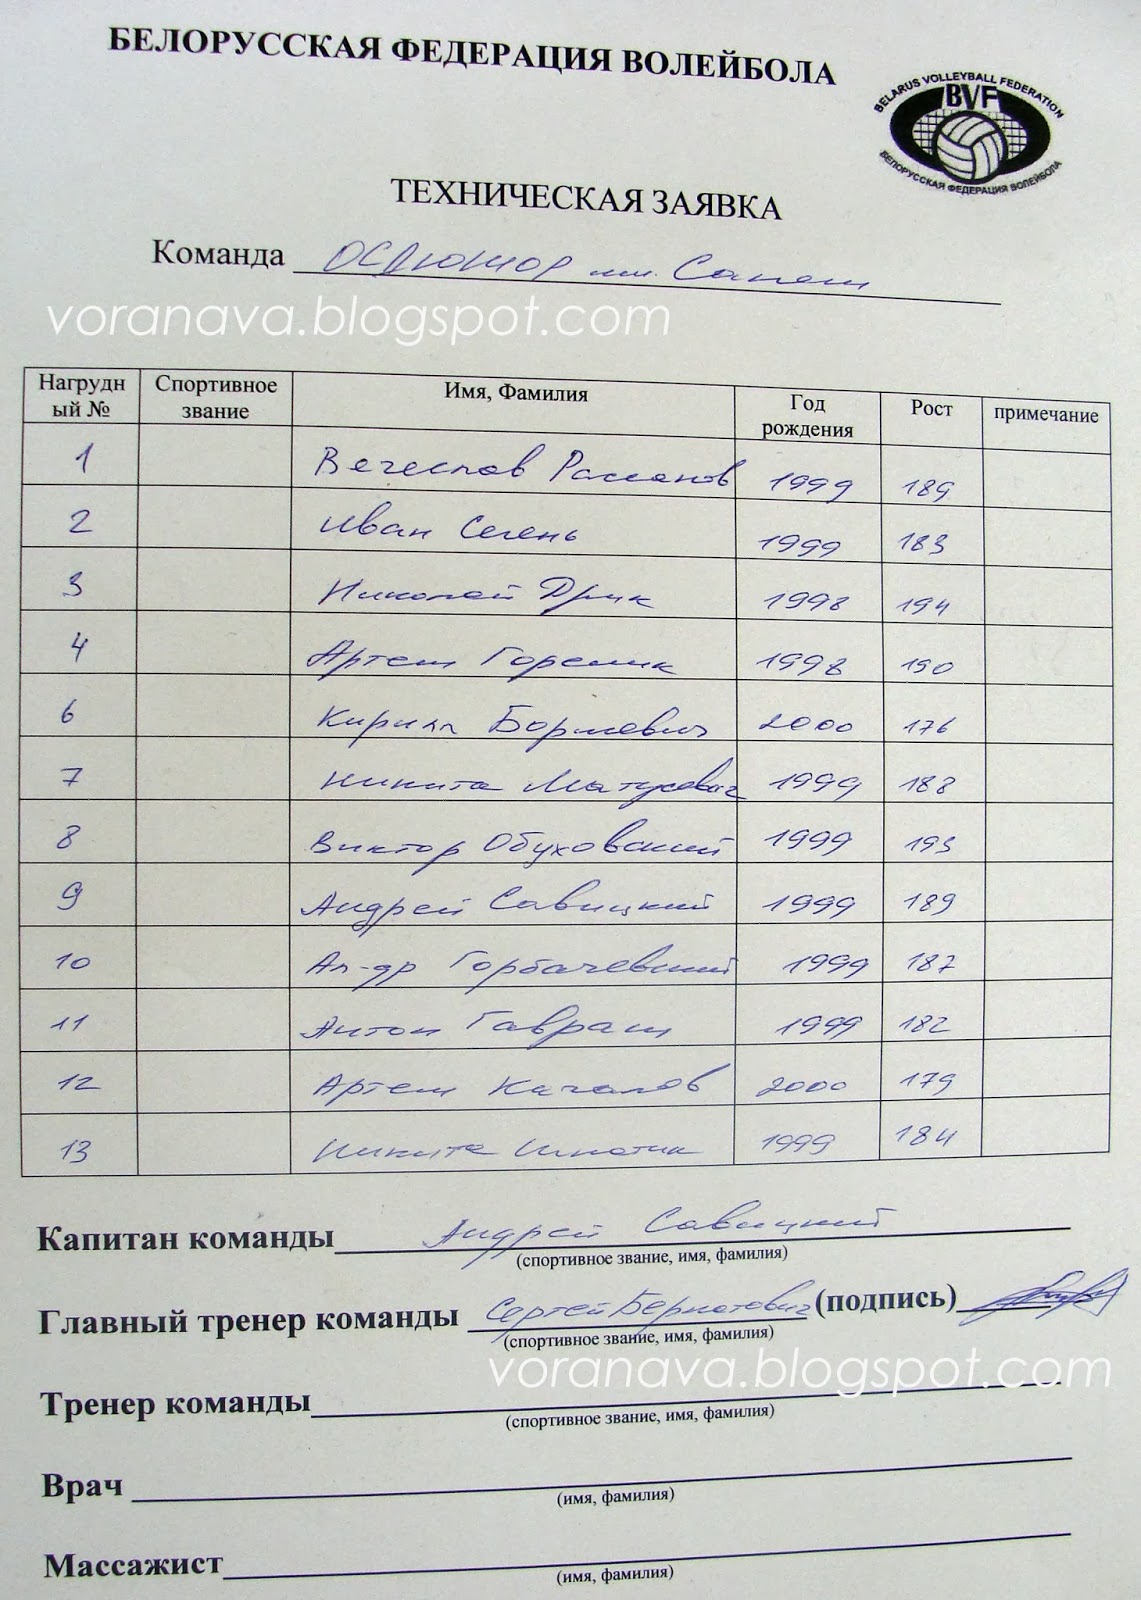 БЕЛОРУССКАЯ ФЕДЕРАЦИЯ ВОЛЕЙБОЛА
BELARUS VOLLEYBALL FEDERATION
BVF
БЕЛОРУССКАЯ ФЕДЕРАЦИЯ ВОЛЕЙБОЛА
ТЕХНИЧЕСКАЯ ЗАЯВКА
Команда ОСДЮШОР им. Сапеги
voranava.blogspot.com
Нагрудный № Спортивное звание Имя, Фамилия Год рождения Рост примечание
1 Вечеслав Романов 1999 189
2 Иван Сегень 1999 183
3 Николай Дрик 1998 194
4 Артем Горелик 1998 190
6 Кирилл 2000 176
7 Никита Матусевич 1999 188
8 Виктор Обуховский 1999 193
9 Андрей Савицкий 1999 189
10 Ал-др Горбачевский 1999 187
11 Антон Гавраш 1999 182
12 Артем Качалов 2000 179
13 Никита Игнатик 1999 184
Капитан команды Андрей Савицкий
(спортивное звание, имя, фамилия)
Главный тренер команды Сергей Бернатович (подпись)
(спортивное звание, имя, фамилия)
voranava.blogspot.com
Тренер команды
(спортивное звание, имя, фамилия)
Врач
(имя, фамилия)
Массажист
(имя, фамилия)